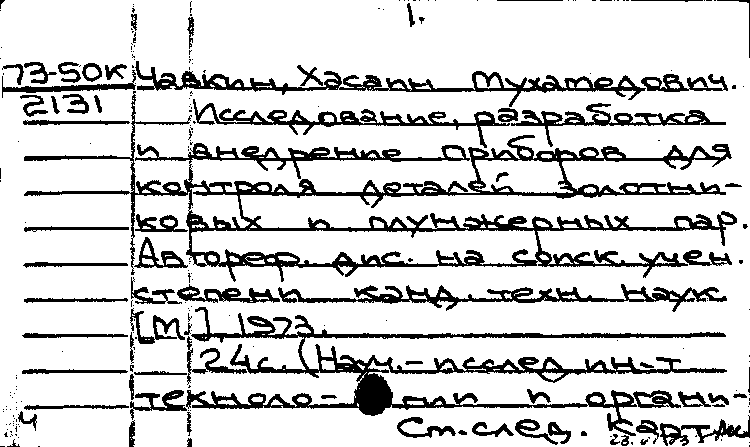 1.
73-50К Чавкин, Хасаин Мухамедович.
2131 Исследование, разработка
и внедрение приборов для
контроля деталей золотни-
ковых и плунжерных пар.
Автореф. дис. на соиск. учен.
степени канд. техн. наук
[М.], 1973.
24с. (Науч.-исслед ин-т
техноло- гии и органи-
Ч См.след. карт